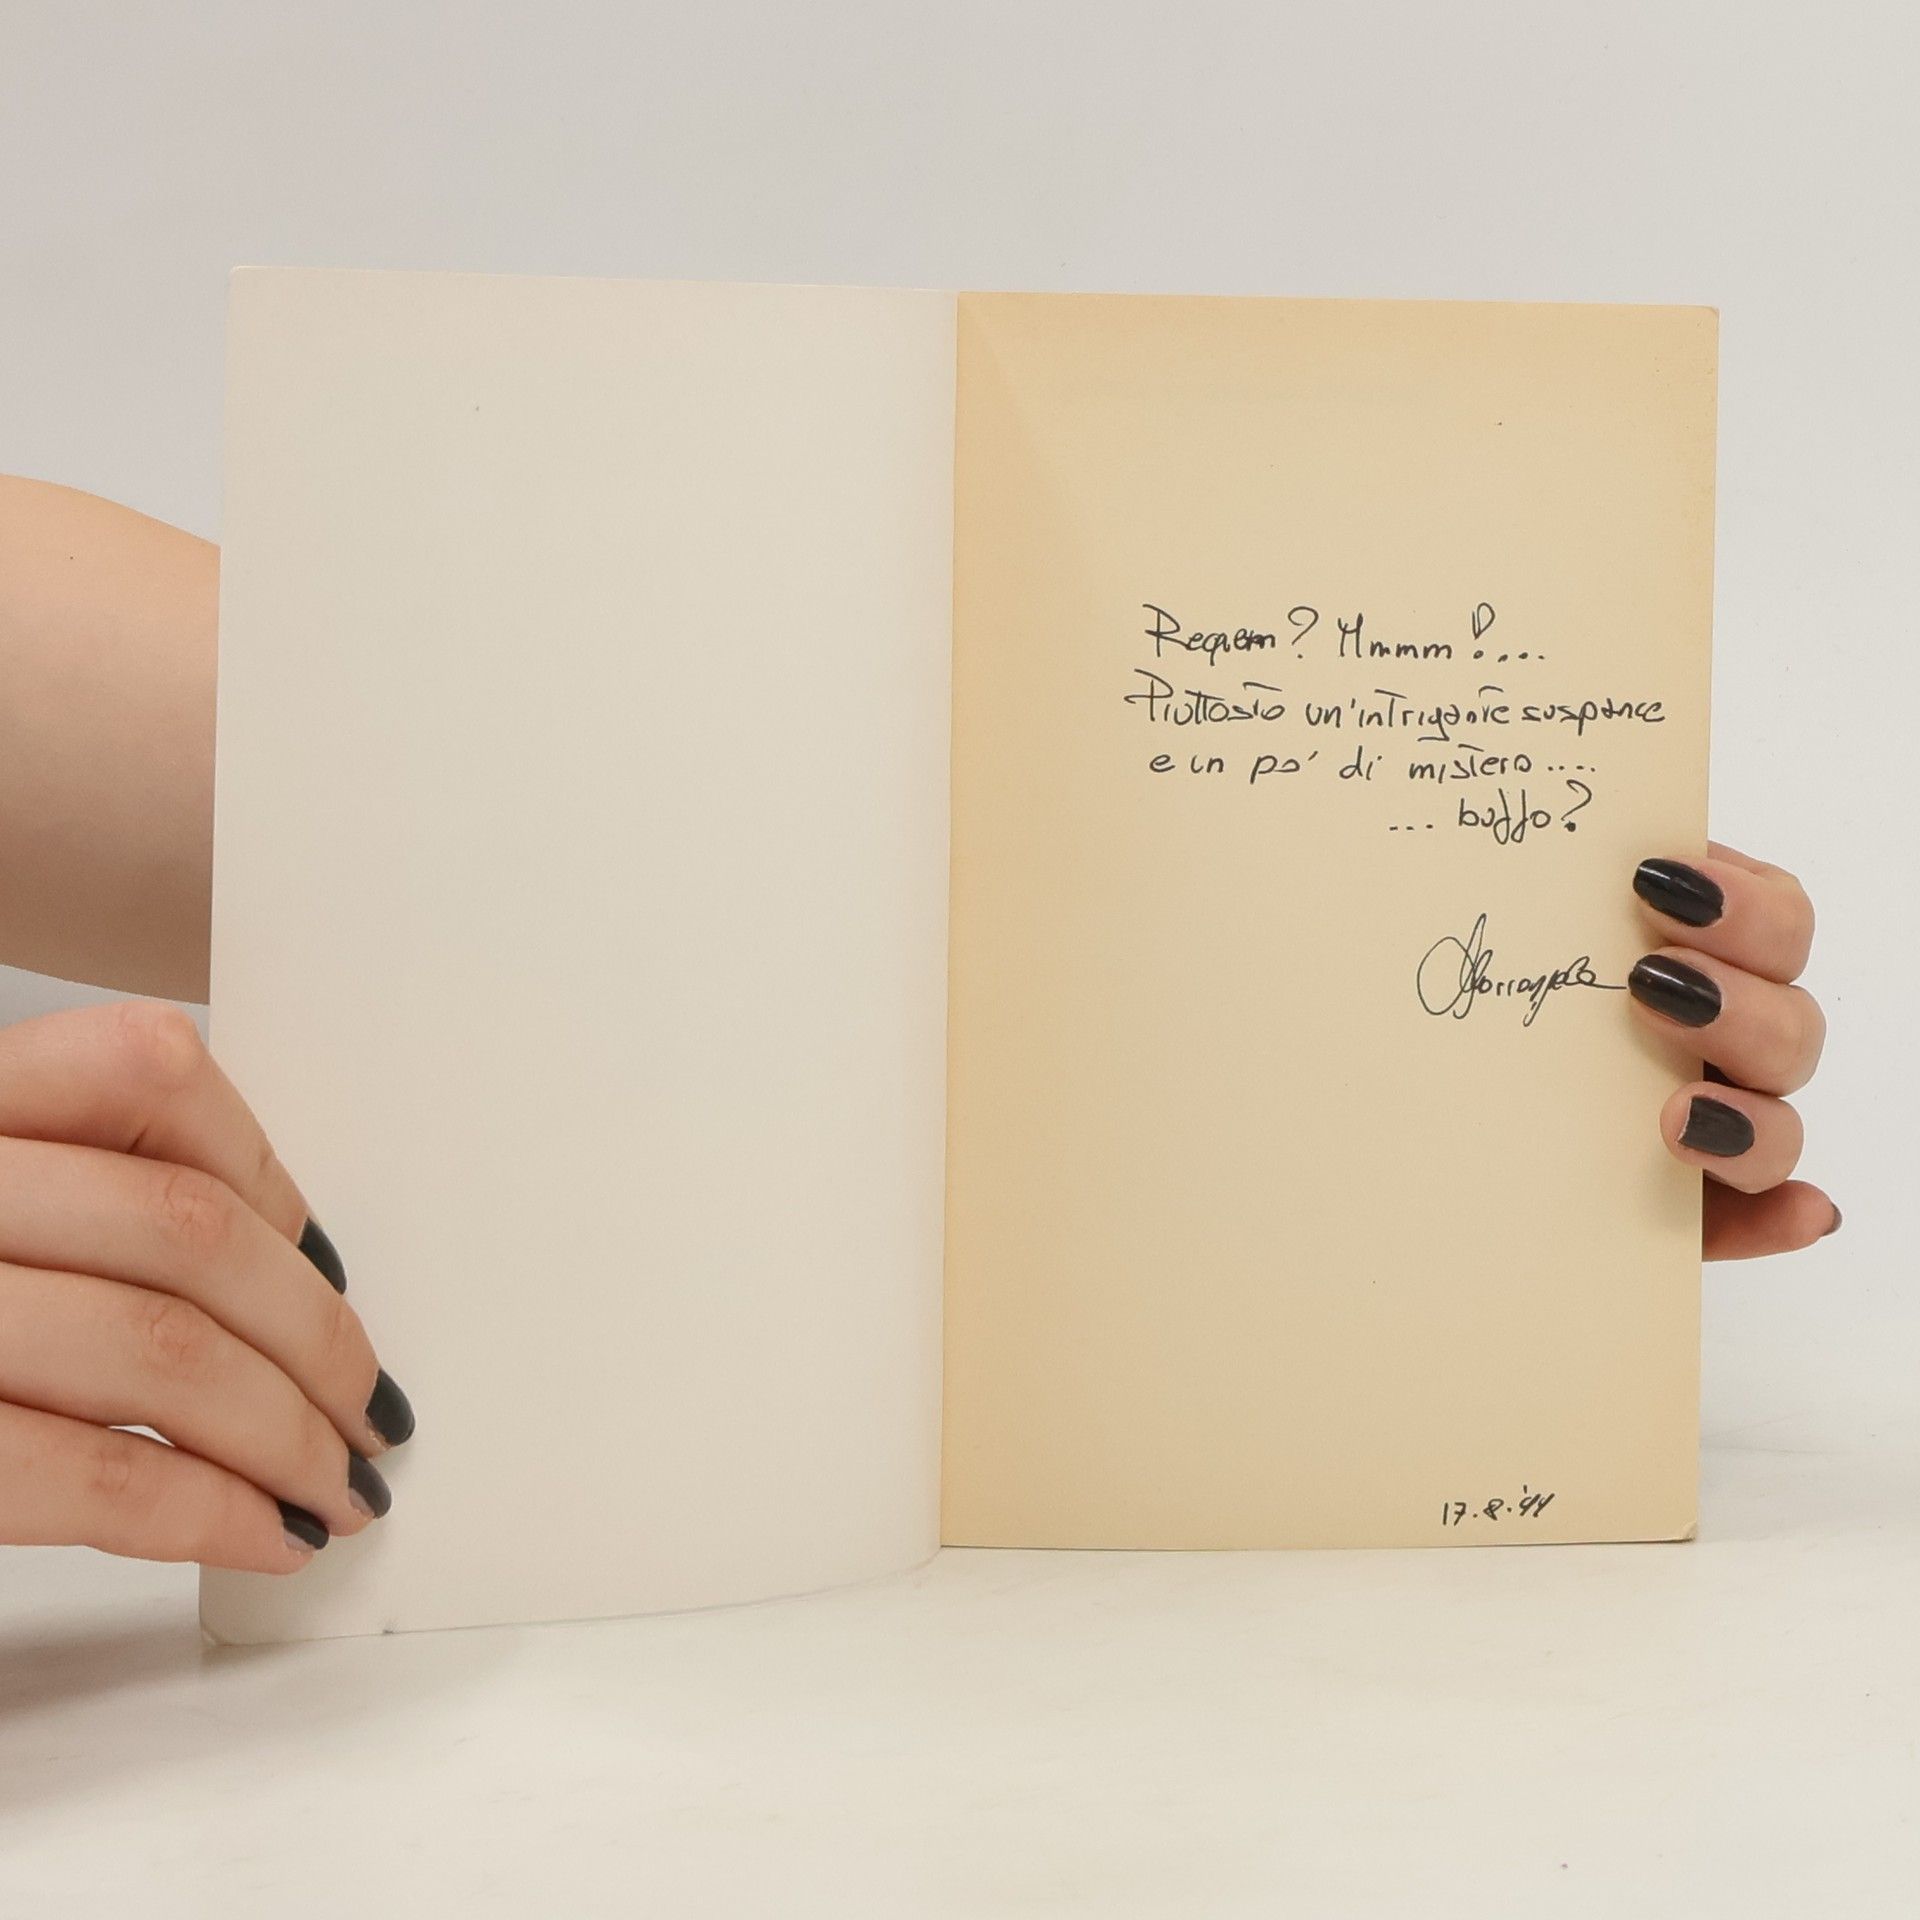 Requiem? Mmmm!....
Piuttosto un'intrigante suspance
e un po' di mistero....
... buffo?
17.8.'91